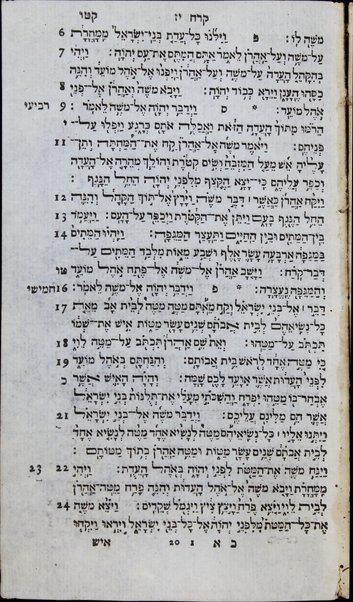 קרח יז קטו
משה לו׃ פ וילנו כל־עדת בני־ישראל ממחרת 6
על־משה ועל־אהרן לאמר אתם המתם את־עם יהוה׃ ויהי 7
בהקהל העדה על־משה ועל־אהרן ויפנו אל־אהל מועד והנה
כסהו הענן וירא כבוד יהוה׃ ויבא משה ואהרן אל־פני 8
אהל מועד׃ ס וידבר יהוה אל־משה לאמר׃ 9 רביעי
הרמו מתוך העדה הזאת ואכלה אתם כרגע ויפלו על־ י
פניהם׃ ויאמר משה אל־אהרן קח את־המחתה ותן־ 11
עליה אש מעל המזבח ושים קטרת והולך מהרה אל־העדה
וכפר עליהם כי־יצא הקצף מלפני יהוה החל הנגף׃
ויקח אהרן כאשר דבר משה וירץ אל־תוך הקהל והנה 12
החל הנגף בעם ויתן את־הקטרת ויכפר על־העם׃ ויעמד 13
בין־המתים ובין החיים ותעצר המגפה׃ ויהיו המתים 14
במגפה ארבעה עשר אלף ושבע מאות מלבד המתים על־
דבר־קרח׃ וישב אהרן אל־משה אל־פתח אהל מועד טו
והמגפה נעצרה׃ פ וידבר יהוה אל־משה לאמר׃ 16 חמישי
דבר אל־בני ישראל וקח מאתם מטה מטה לבית אב מאת 17
כל־נשיאהם לבית אבתם שנים עשר מטות איש את־שמו
תכתב על־מטהו׃ ואת שם אהרן תכתב על־מטה לוי 18
כי מטה אחד לראש בית אבותם׃ והנחתם באהל מועד 19
לפני העדות אשר אועד לכם שמה׃ והיה האיש אשר כ
אבחר־בו מטהו יפרח והשכתי מעלי את־תלנות בני ישראל
אשר הם מלינם עליכם׃ וידבר משה אל־בני ישראל 21
ויתנו אליו כל־נשיאיהם מטה לנשיא אחד מטה לנשיא אחד
לבית אבתם שנים עשר מטות ומטה אהרן בתוך מטותם׃
וינח משה את־המטת לפני יהוה באהל העדת׃ ויהי 22 23
ממחרת ויבא משה אל־אהל העדות והנה פרח מטה־אהרן
לבית לוי ויצא פרח ויצץ ציץ ויגמל שקדים׃ ויצא משה 24
את־כל־המטת מלפני יהוה אל־כל־בני ישראל ויראו ויקחו
כא 1 20 איש